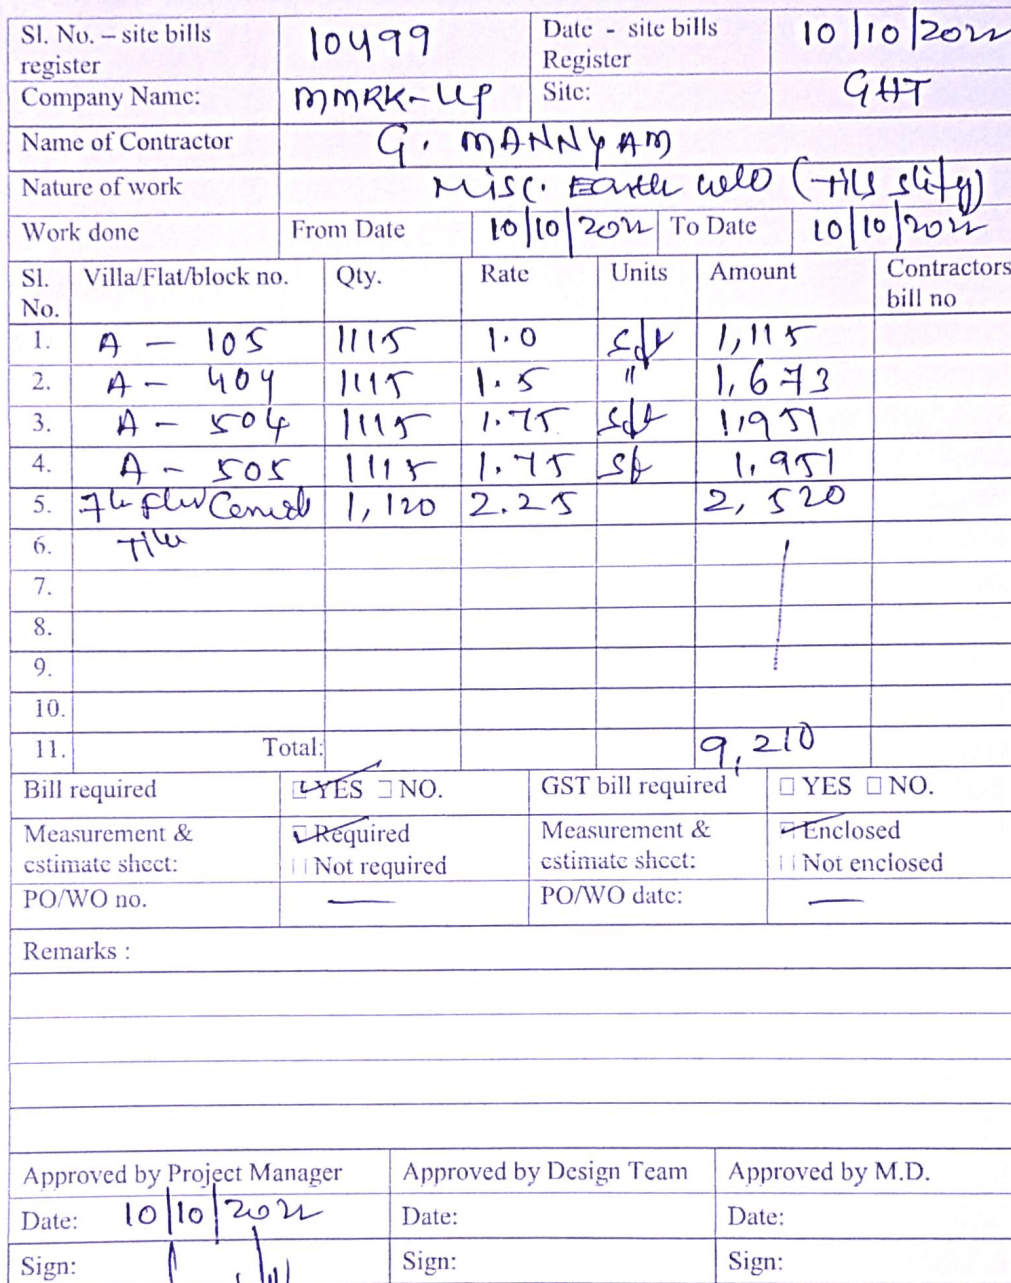 Sl. No. – site bills register 10499 Date - site bills Register 10/10/2022
Company Name: MMRK-UP Site: GHT
Name of Contractor G. MANNYAM
Nature of work Misc. Earth
Work done From Date 10/10/2022 To Date 10/10/2022
Sl. No. Villa/Flat/block no. Qty. Rate Units Amount Contractors bill no
1. A - 105 1115 1.0 sft 1,115
2. A - 404 1115 1.5 " 1,673
3. A - 504 1115 1.75 sft 1,951
4. A - 505 1115 1.75 sft 1,951
5. 1,120 2.25 2,520
6.
7.
8.
9.
10.
11. Total: 9,210
Bill required ☑ YES ☐ NO. GST bill required ☐ YES ☐ NO.
Measurement & estimate sheet: ☑ Required ☐ Not required Measurement & estimate sheet: ☑ Enclosed ☐ Not enclosed
PO/WO no. — PO/WO date: —
Remarks :
Approved by Project Manager Approved by Design Team Approved by M.D.
Date: 10/10/2022 Date: Date:
Sign: Sign: Sign: